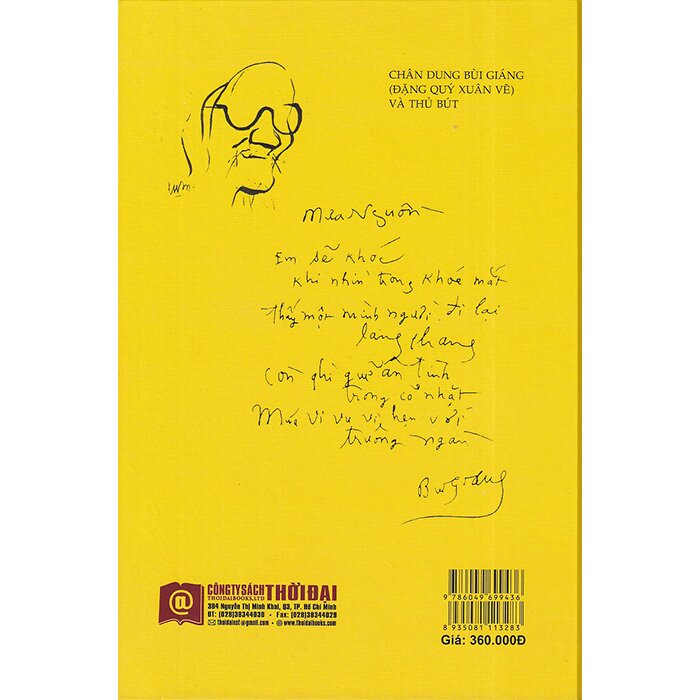 CHÂN DUNG BÙI GIÁNG
(ĐẶNG QUÝ XUÂN VẼ)
VÀ THỦ BÚT
Mưa Nguồn
Em sẽ khóc
khi nhìn trong khóe mắt
thấy một mình người đi lại
lang thang
Còn ghì giữ ân tình
trong cỏ nhặt
Mưa vi vu vì hẹn với
trường ngàn
Bùi Giáng
CÔNG TY SÁCH THỜI ĐẠI
THOIDAIBOOKS,LTD
394 Nguyễn Thị Minh Khai, Q3, TP. Hồ Chí Minh
ĐT: (028)38344030 • Fax: (028)38344029
thoidainet@gmail.com • www.thoidaibooks.com
9 786049 699436
8 935081 113283
Giá: 360.000Đ